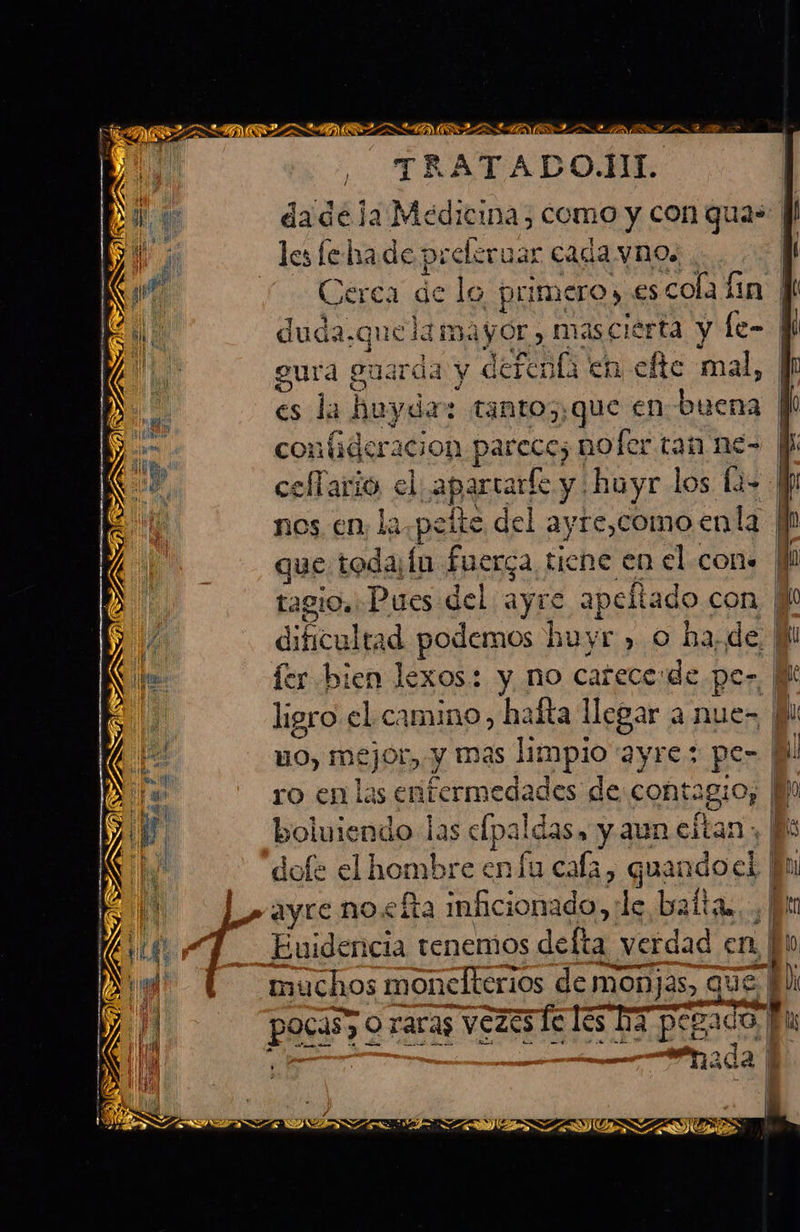 TRATADO.III.
da de la Medicina, como y con qua-
les ſe ha de preſeruar cada vno.
Cerca de lo primero, es coſa ſin
duda, que la mayor, mas cierta y ſe-
gura guarda y defenſa en eſte mal,
es la huyda: tanto, que en buena
conſideracion parece, no ſer tan ne-
ceſſario el apartarſe y huyr los ſa-
nos en la peſte del ayre, como en la
que toda ſu fuerça tiene en el con-
tagio. Pues del ayre apeſtado con
dificultad podemos huyr, o ha de
ſer bien lexos: y no carece de pe-
ligro el camino, haſta llegar a nue-
uo, mejor, y mas limpio ayre: pe-
ro en las enfermedades de contagio,
boluiendo las eſpaldas, y aun eſtan-
doſe el hombre en ſu caſa, quando el
ayre no eſta inficionado, le baſta.
Euidencia tenemos deſta verdad en
muchos moneſterios de monjas, que
pocas, o raras vezes ſe les ha pegado
nada